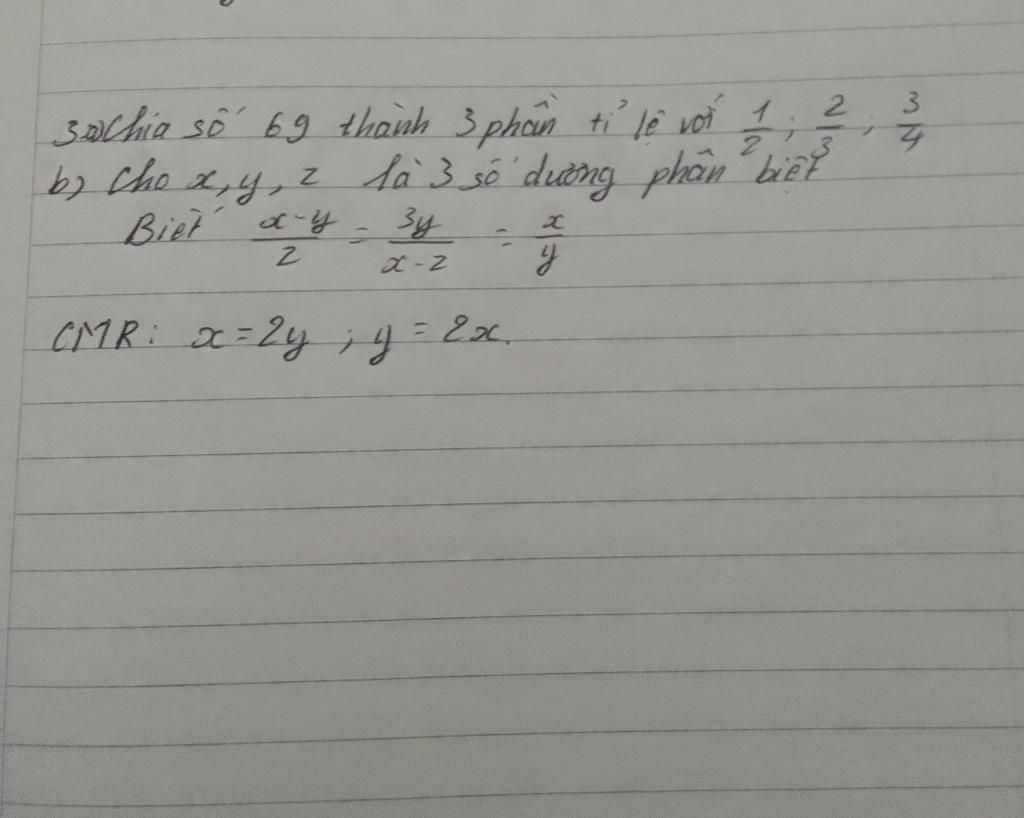 3a) Chia số 69 thành 3 phần tỉ lệ với 1/2; 2/3; 3/4
b) Cho x, y, z là 3 số dương phân biệt
Biết x-y/z = 3y/x-z = x/y
CMR: x = 2y; y = 2x.